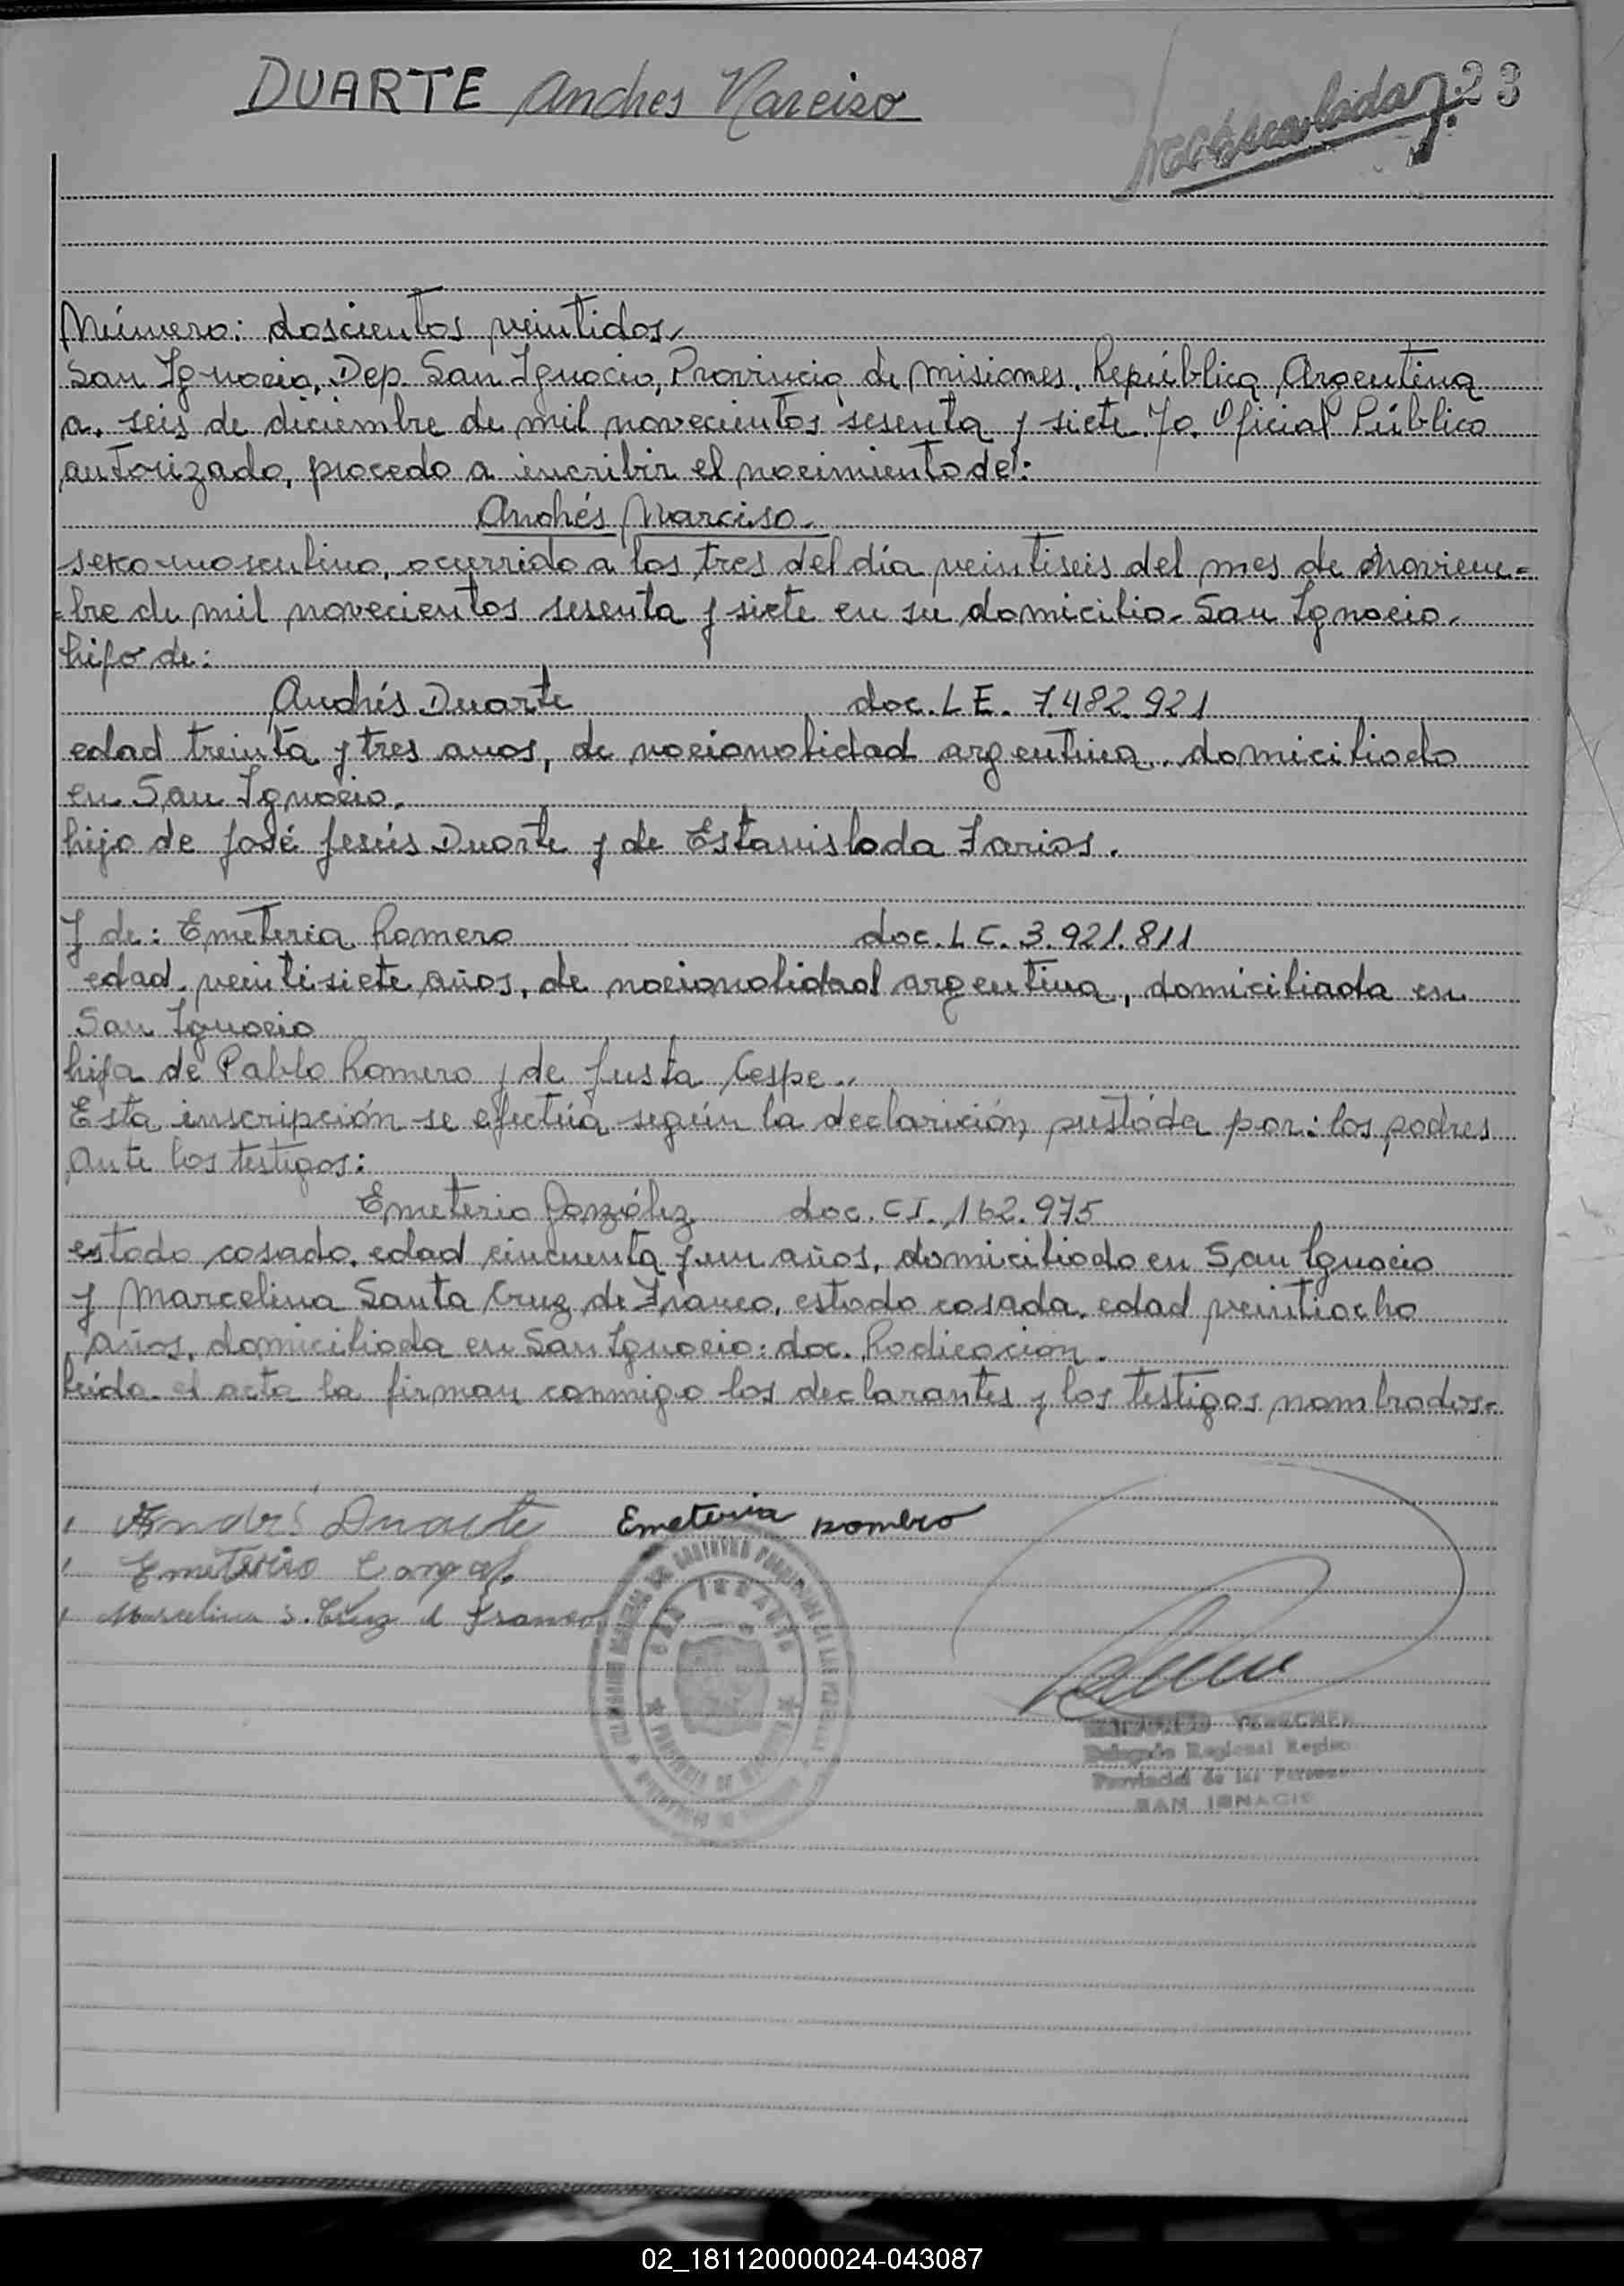 DUARTE Andres Narciso
23
Número: doscientos veintidos.
San Ignacio, Dep. San Ignacio, Provincia de Misiones, República Argentina
a, seis de diciembre de mil novecientos sesenta y siete. Yo. Oficial Público
autorizado, procedo a incribir el nacimiento de:
Andrés Narciso.
sexo masculino, ocurrido a las tres del día veintiseis del mes de noviem=
=bre de mil novecientos sesenta y siete en su domicilio. San Ignacio.
hijo de:
Andrés Duarte doc. L E. 7.482.921
edad treinta y tres anos, de nacionalidad argentina. domiciliado
en San Ignacio.
hijo de José Jesús Duarte y de Estanislada Farias.
Y de: Emeteria Romero doc. L C. 3.921.811
edad veintisiete años, de nacionalidad argentina, domiciliada en
San Ignacio
hija de Pablo Romero y de Justa Cespe..
Esta inscripción se efectúa según la declarición prestada por: los padres
Ante los testigos:
Emeterio González doc. C I. 162.975
estado casado, edad cincuenta y un años, domiciliado en San Ignacio
y Marcelina Santa Cruz de Franco, estado casada, edad veintiocho
años, domiciliada en San Ignacio: doc. Radicacion.
leída el acta la firman conmigo los declarantes y los testigos nombrados.-
Andrés Duarte Emeteria Romero
Emeterio
Marcelina S. Cruz d Franco
Delegado Regional
Provincial de las
SAN IGNACIO
02_181120000024-043087